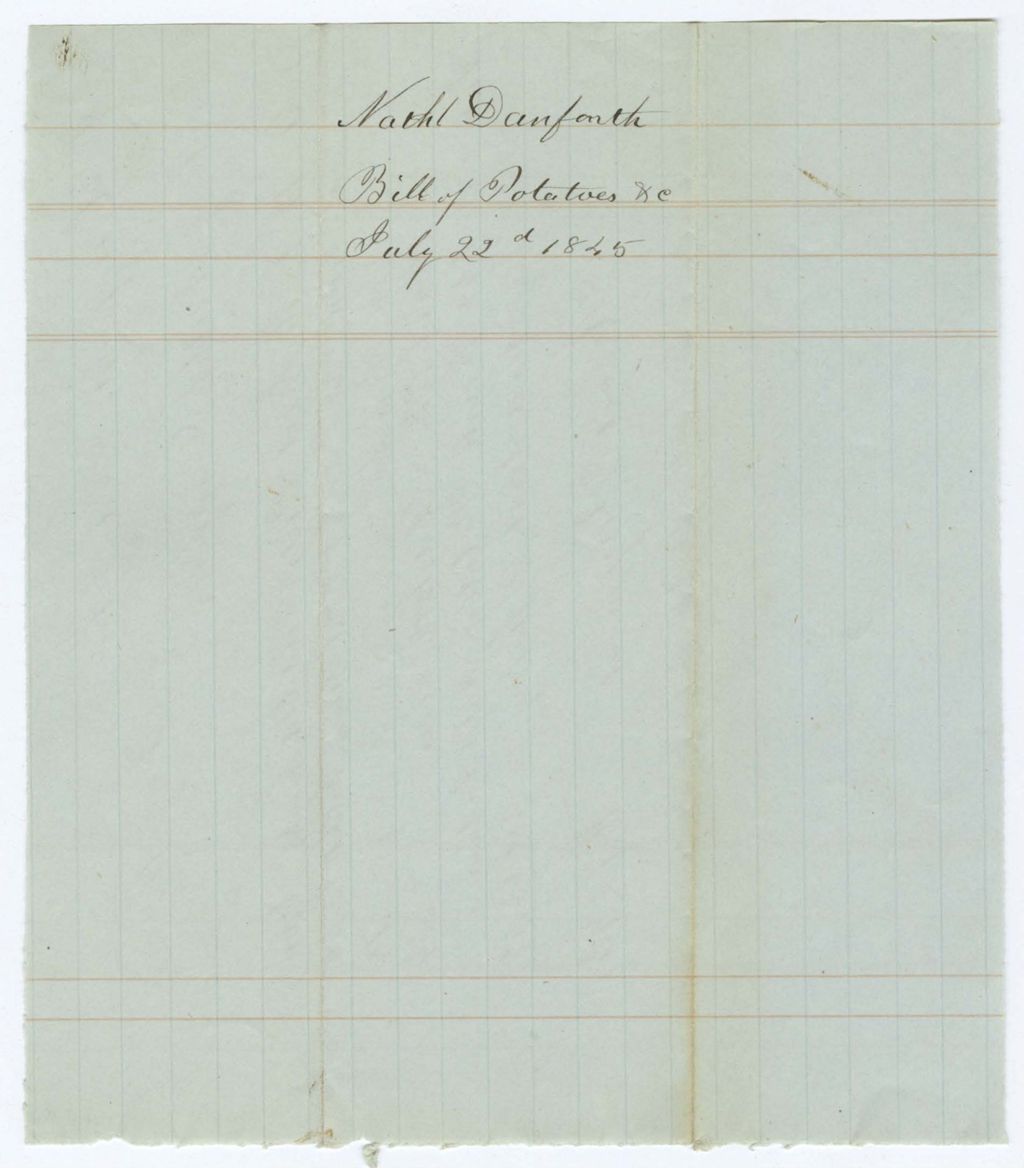 Nathl Danforth
Bill of Potatoes &c
July 22d 1845